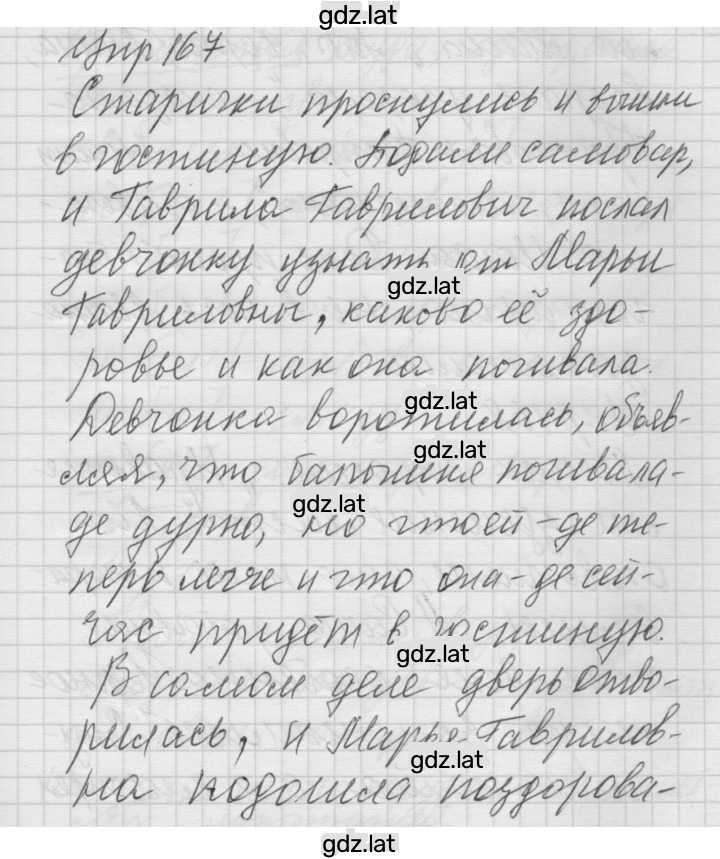 gdz.lat
Упр 167
Старички проснулись и вышли
в гостиную. Подали самовар,
и Гаврила Гаврилович послал
девчонку узнать от Марьи
gdz.lat
Гавриловны, каково её здо-
ровье и как она почивала.
gdz.lat
Девчонка воротилась, объяв-
gdz.lat
ляя, что барышня почивала-
gdz.lat
де дурно, но что ей-де те-
перь легче и что она-де сей-
час придёт в гостиную.
gdz.lat
В самом деле дверь отво-
рилась, и Марья Гаврилов-
gdz.lat
на подошла поздорова-
gdz.lat